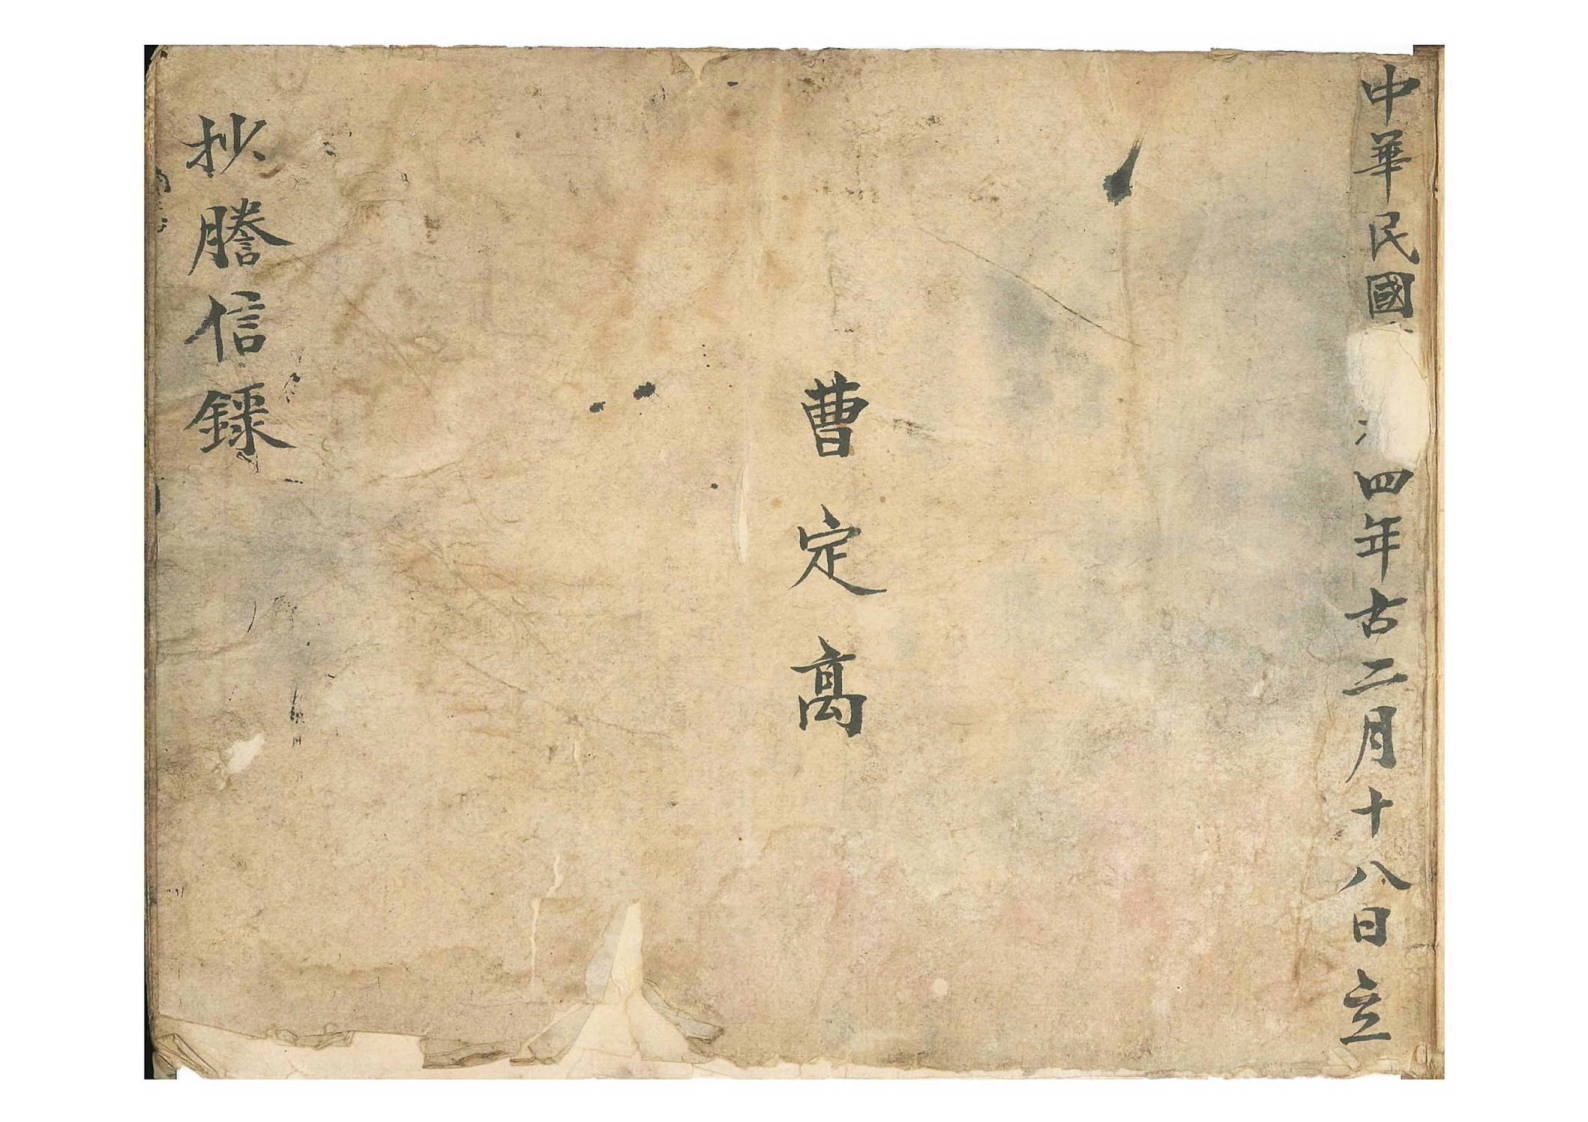 中華民國四年古二月十八日立
曹定高
抄謄信錄